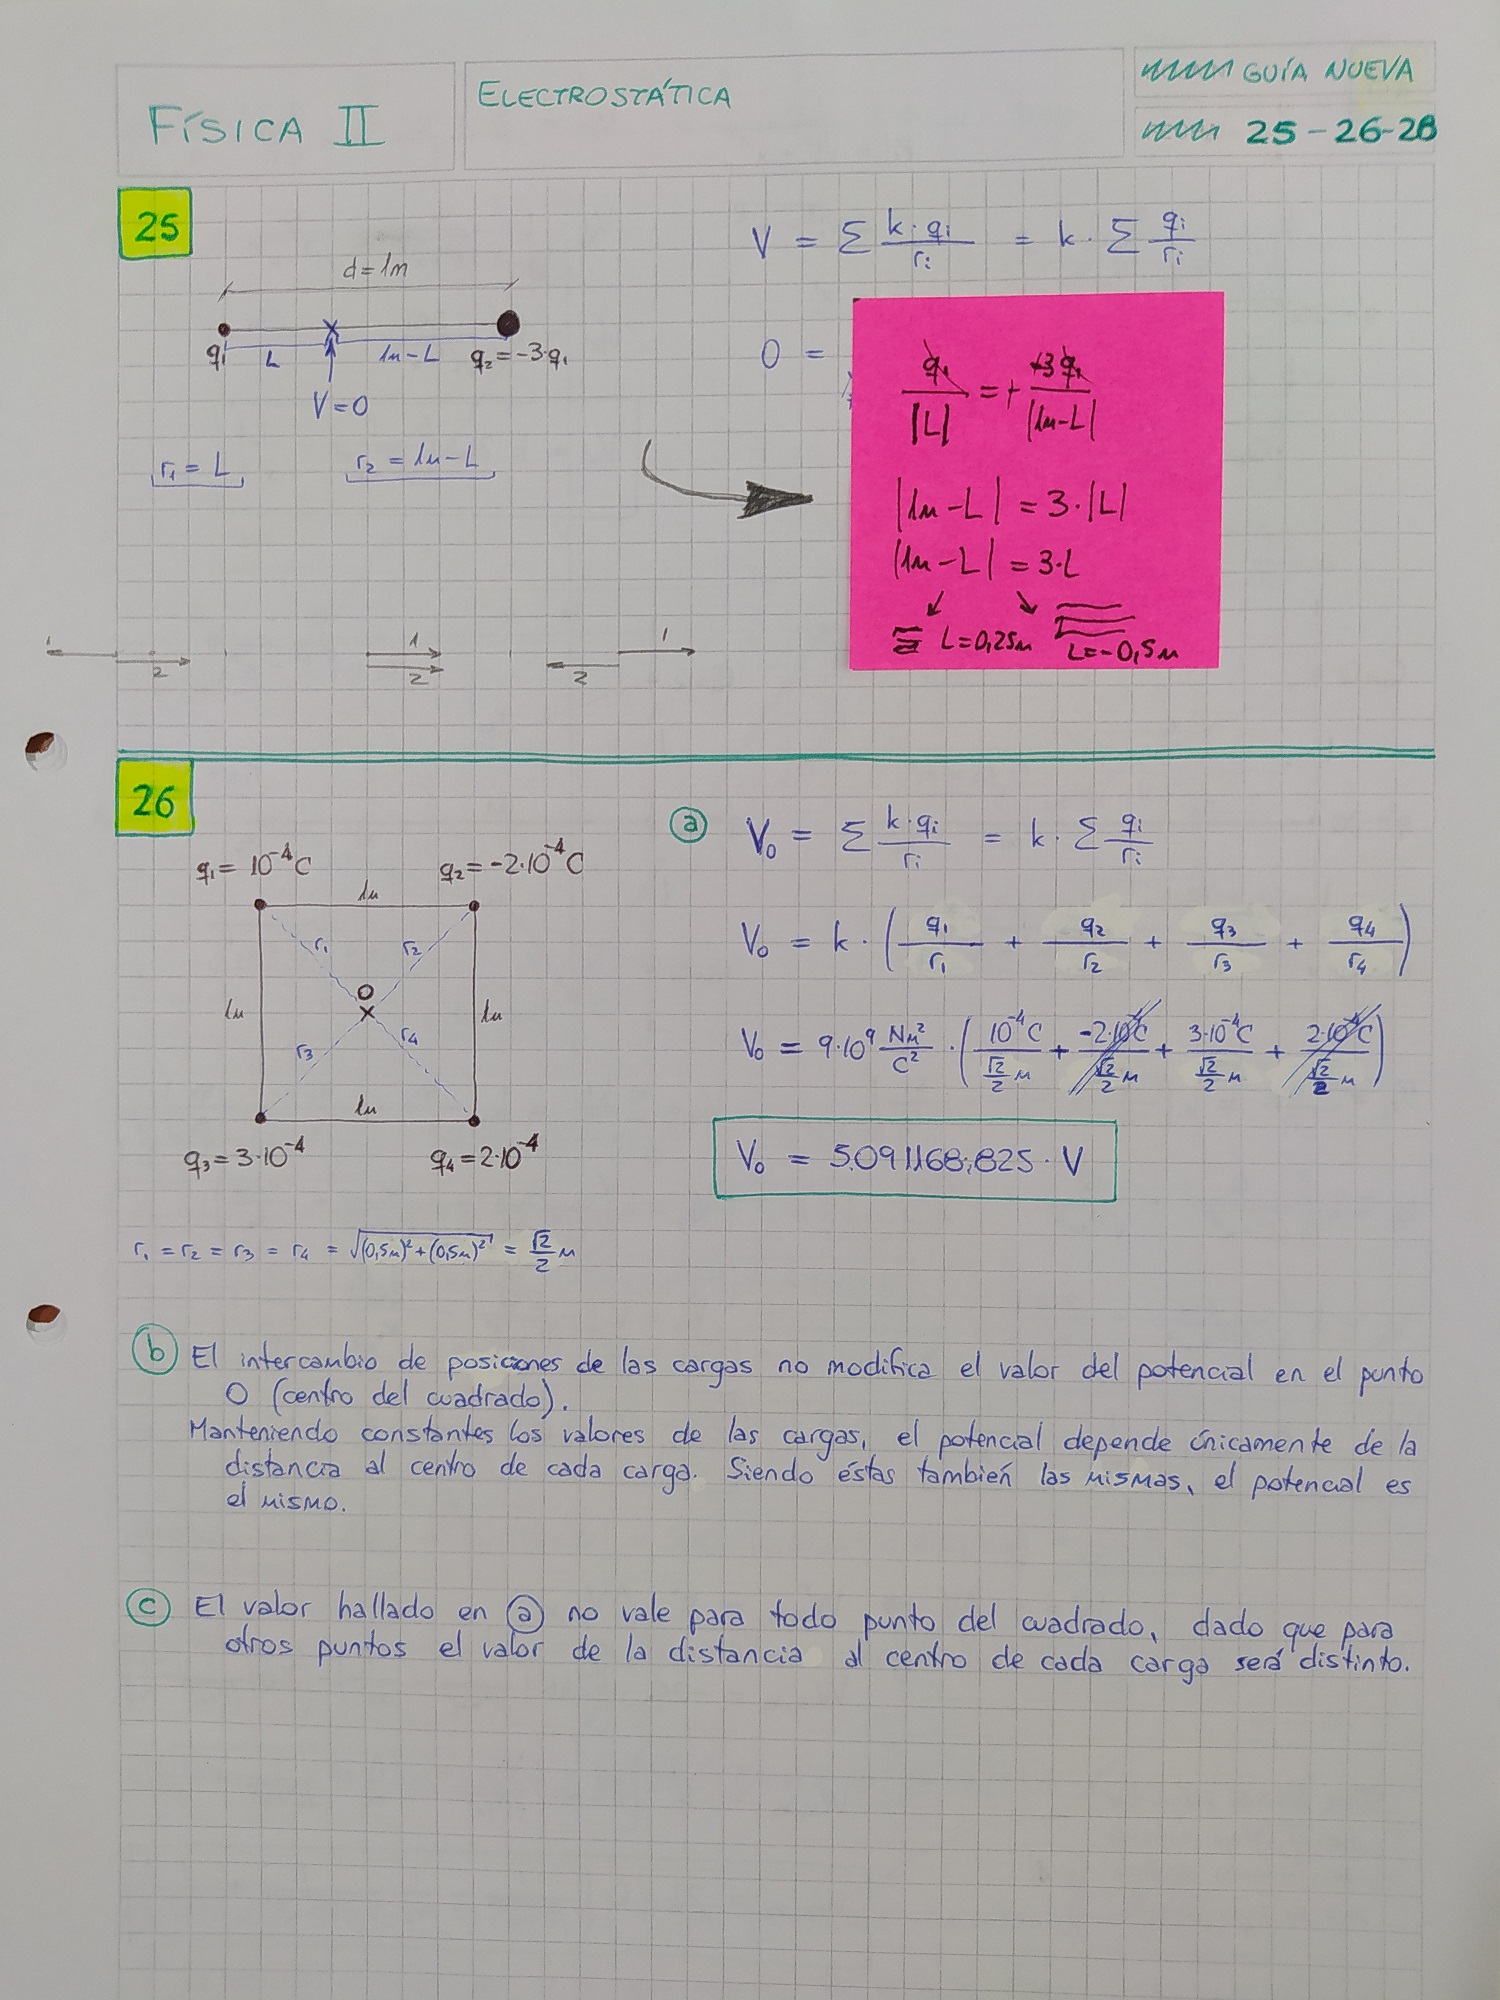 FÍSICA II
ELECTROSTÁTICA
GUÍA NUEVA
25-26-28
25
d=1m
q1 L 1m-L q2=-3·q1
V=0
r1 = L r2 = 1m-L
V = Σ k·qi/ri = k·Σ qi/ri
0 =
q1/|L| = + 3q1/|1m-L|
|1m-L| = 3·|L|
|1m-L| = 3·L
L=0,25m L=-0,5m
1 2 1 2 1 2
26
q1= 10^-4 C q2=-2·10^-4 C
1m
r1 r2
1m O 1m
r3 r4
1m
q3=3·10^-4 q4=2·10^-4
r1 = r2 = r3 = r4 = √((0,5m)²+(0,5m)²) = √2/2 m
a V0 = Σ k·qi/ri = k·Σ qi/ri
V0 = k·(q1/r1 + q2/r2 + q3/r3 + q4/r4)
V0 = 9·10^9 Nm²/C² · (10^-4 C/(√2/2 m) + -2·10^-4 C/(√2/2 m) + 3·10^-4 C/(√2/2 m) + 2·10^-4 C/(√2/2 m))
V0 = 5.091.168,825·V
b El intercambio de posiciones de las cargas no modifica el valor del potencial en el punto
O (centro del cuadrado).
Manteniendo constantes los valores de las cargas, el potencial depende únicamente de la
distancia al centro de cada carga. Siendo éstas también las mismas, el potencial es
el mismo.
c El valor hallado en a no vale para todo punto del cuadrado, dado que para
otros puntos el valor de la distancia al centro de cada carga será distinto.